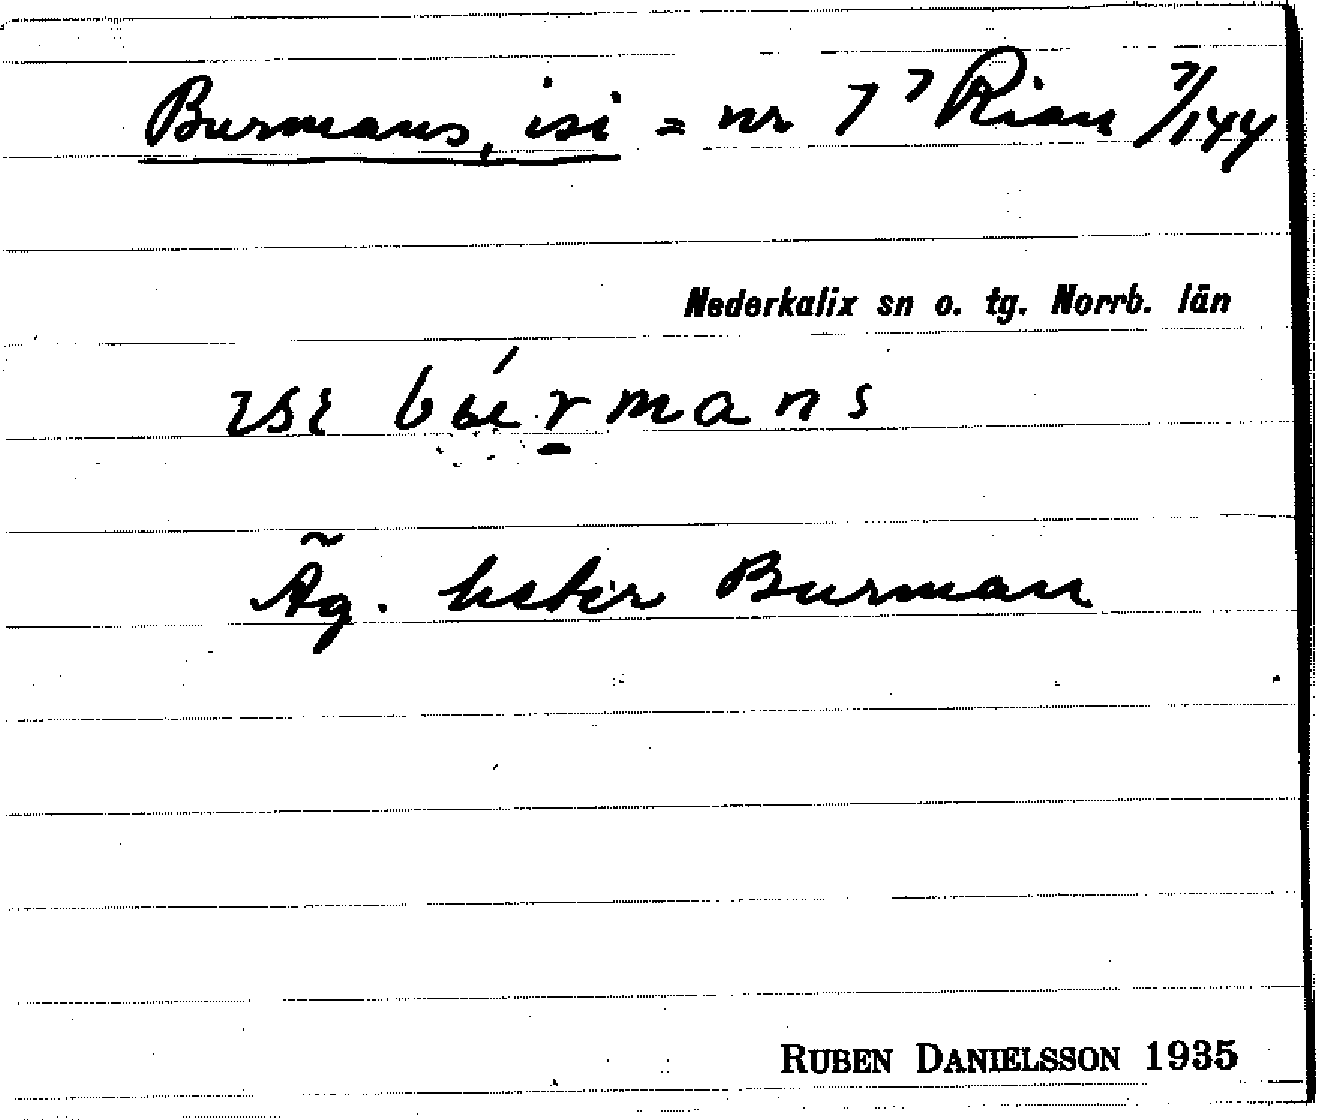 Burmans, isi = nr 7⁷ Rian 7/144
Nederkalix sn o. tg. Norrb. län
ısı bu̇́rmans
Äg. heter Burman
RUBEN DANIELSSON 1935